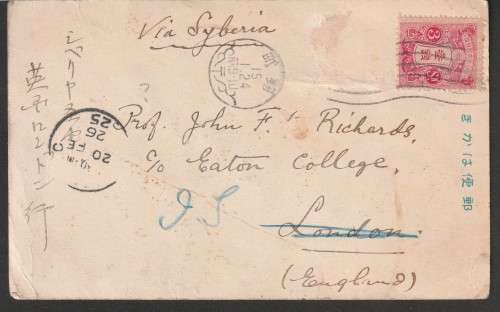 Via Syberia
シベリヤ経由
英国ロンドン行
Prof. John F. Richards,
c/o Eaton College,
London
(England)
きかは便郵